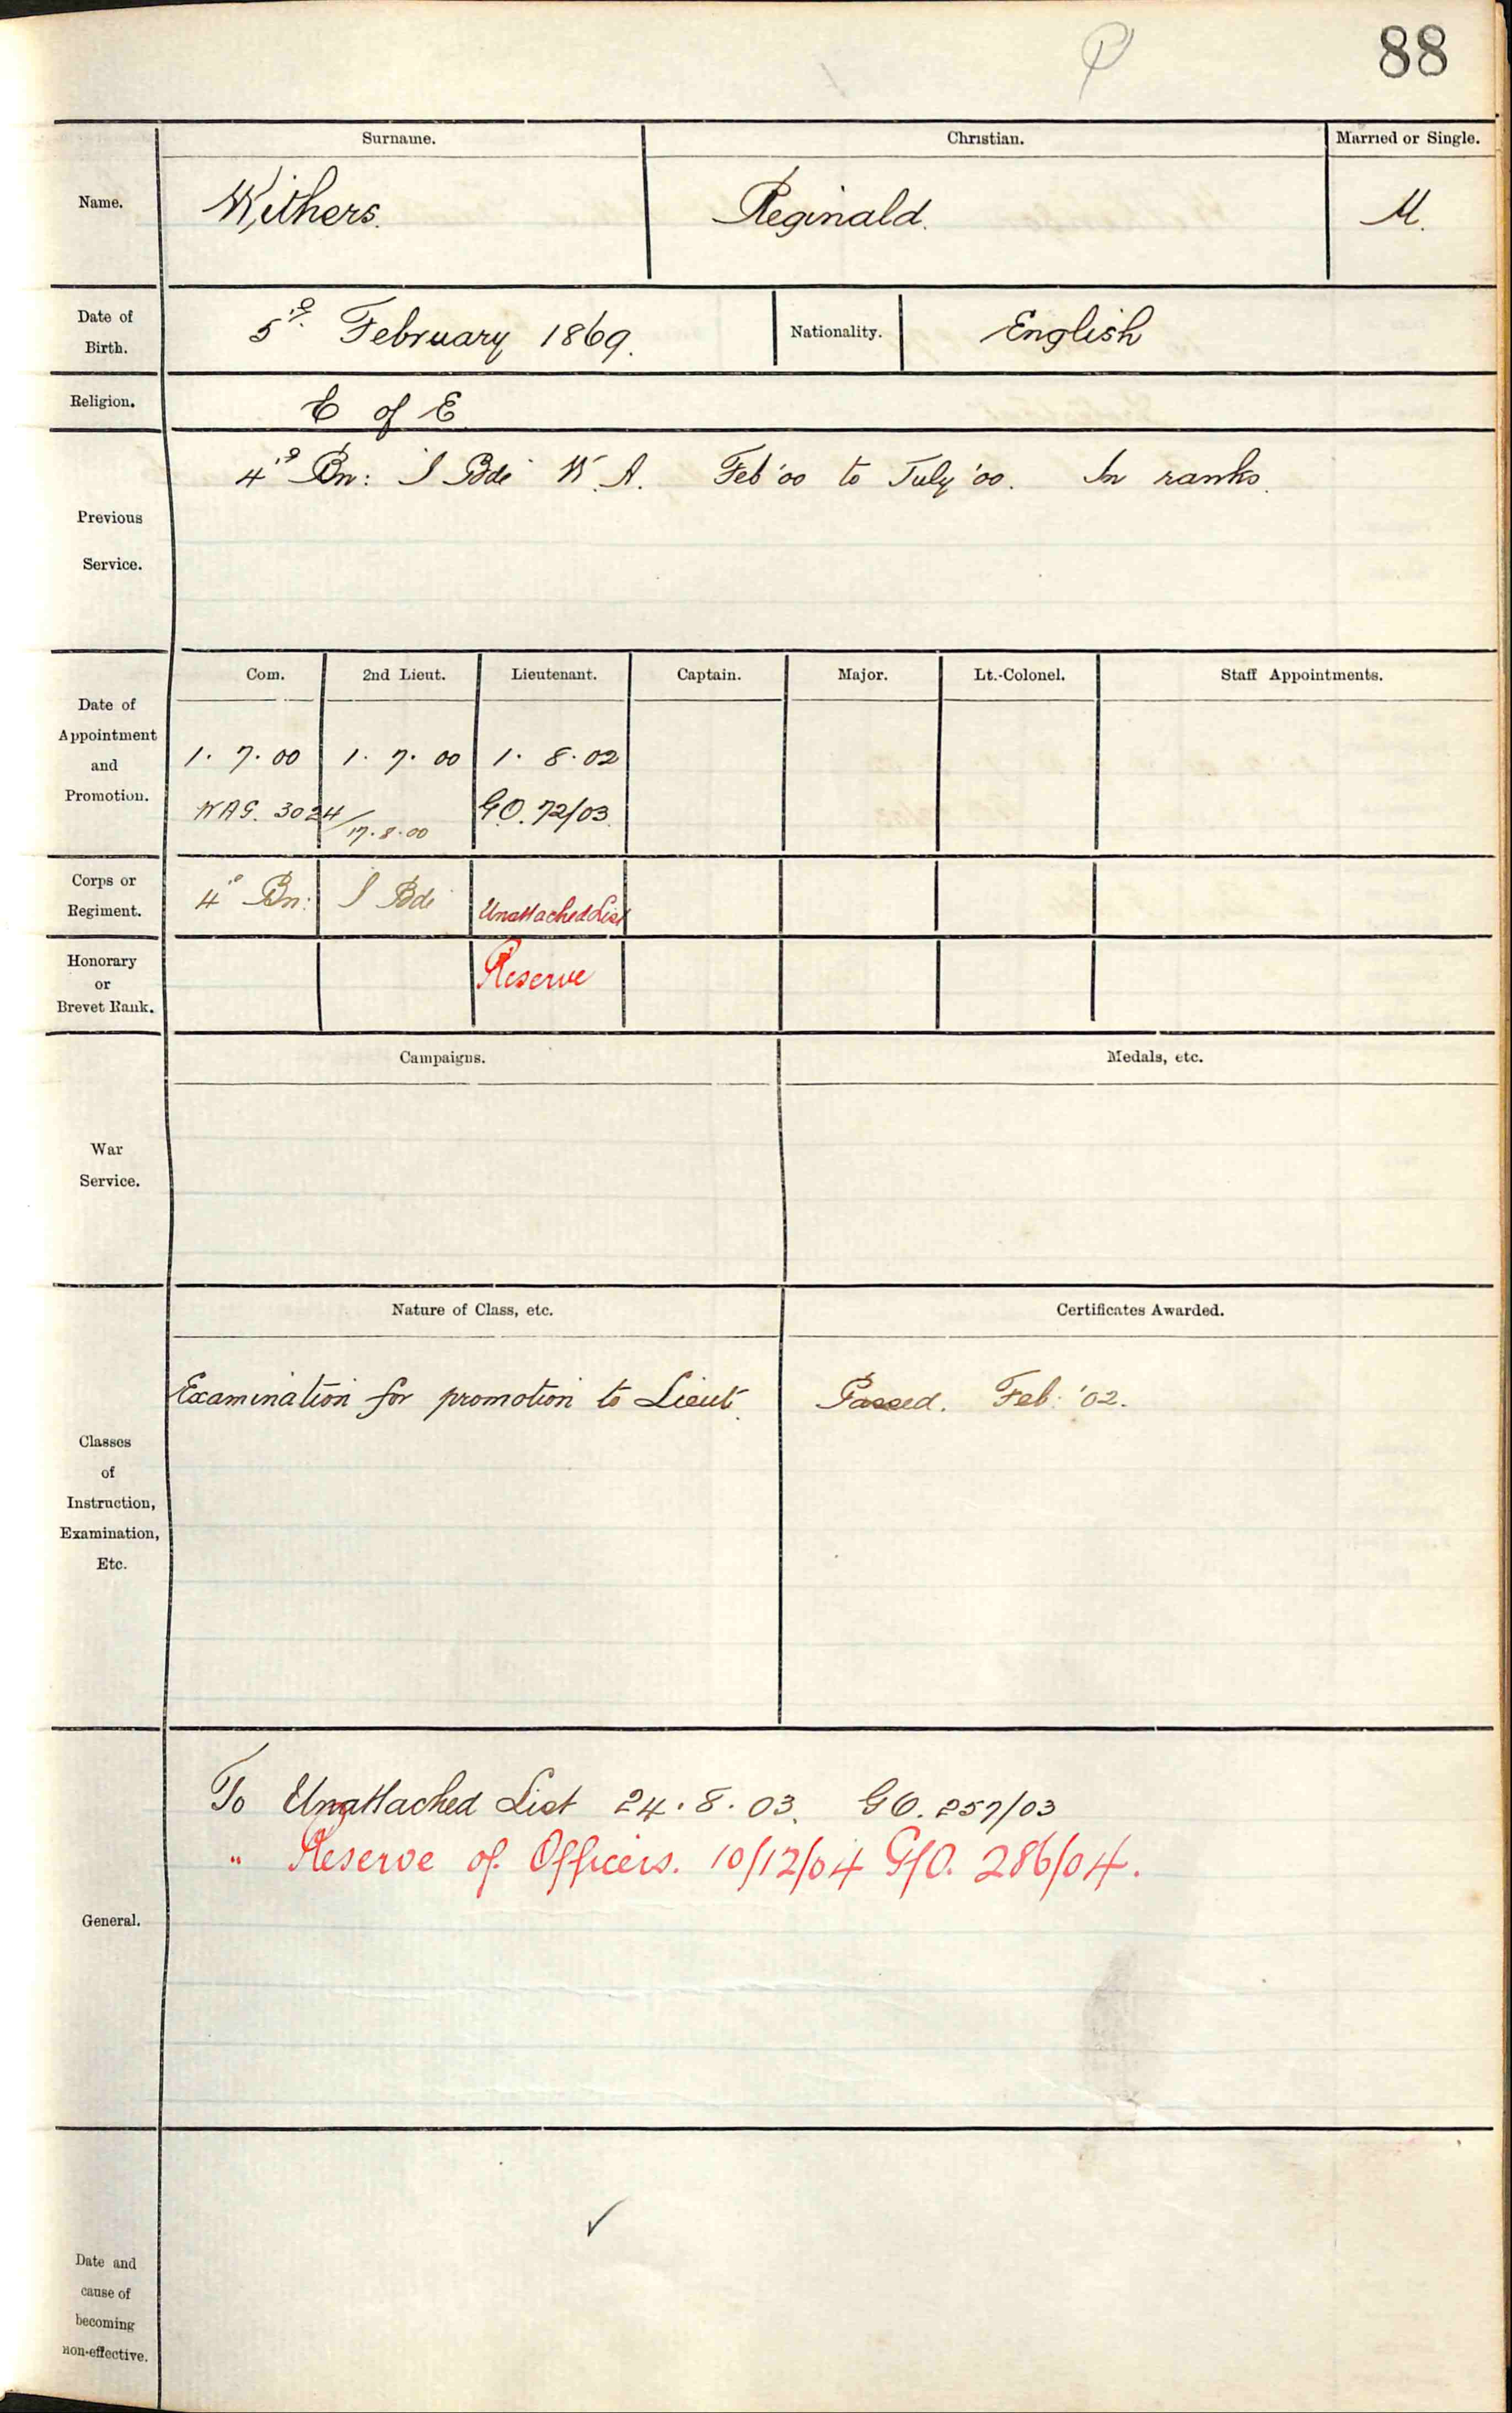 88
Surname. Christian. Married or Single.
Name. Withers. Reginald. M.
Date of Birth. 5th February 1869. Nationality. English
Religion. C of E
Previous Service. 4th Bn: I Bde W.A. Feb '00 to July '00. In ranks.
Com. 2nd Lieut. Lieutenant. Captain. Major. Lt.-Colonel. Staff Appointments.
Date of Appointment and Promotion. 1. 7. 00 1. 7. 00 1. 8. 02
WAG. 3024/17.8.00 G.O. 72/03
Corps or Regiment. 4th Bn: I Bde Unattached List
Honorary or Brevet Rank. Reserve
Campaigns. Medals, etc.
War Service.
Nature of Class, etc. Certificates Awarded.
Examination for promotion to Lieut. Passed. Feb: '02.
Classes of Instruction, Examination, Etc.
To Unattached List 24.8.03. GO. 257/03
" Reserve of Officers. 10/12/04 G/O. 286/04.
General.
Date and cause of becoming non-effective.